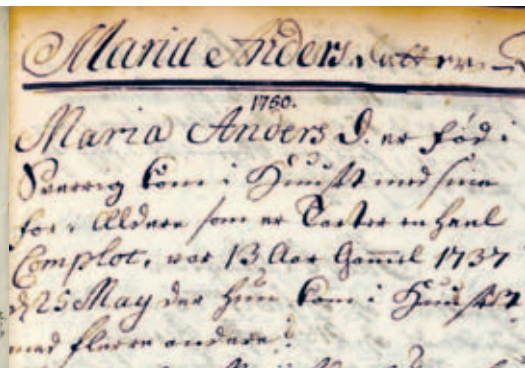 Maria Anders datter
1750.
Maria Anders D. er fød i
Sverrig kom i Huuset med sine
for, Ældere som er Tarter en heel
Complot, var 13 Aar Gam̄el 1737
d 25 May der hun kom i Huuset
med flere andre